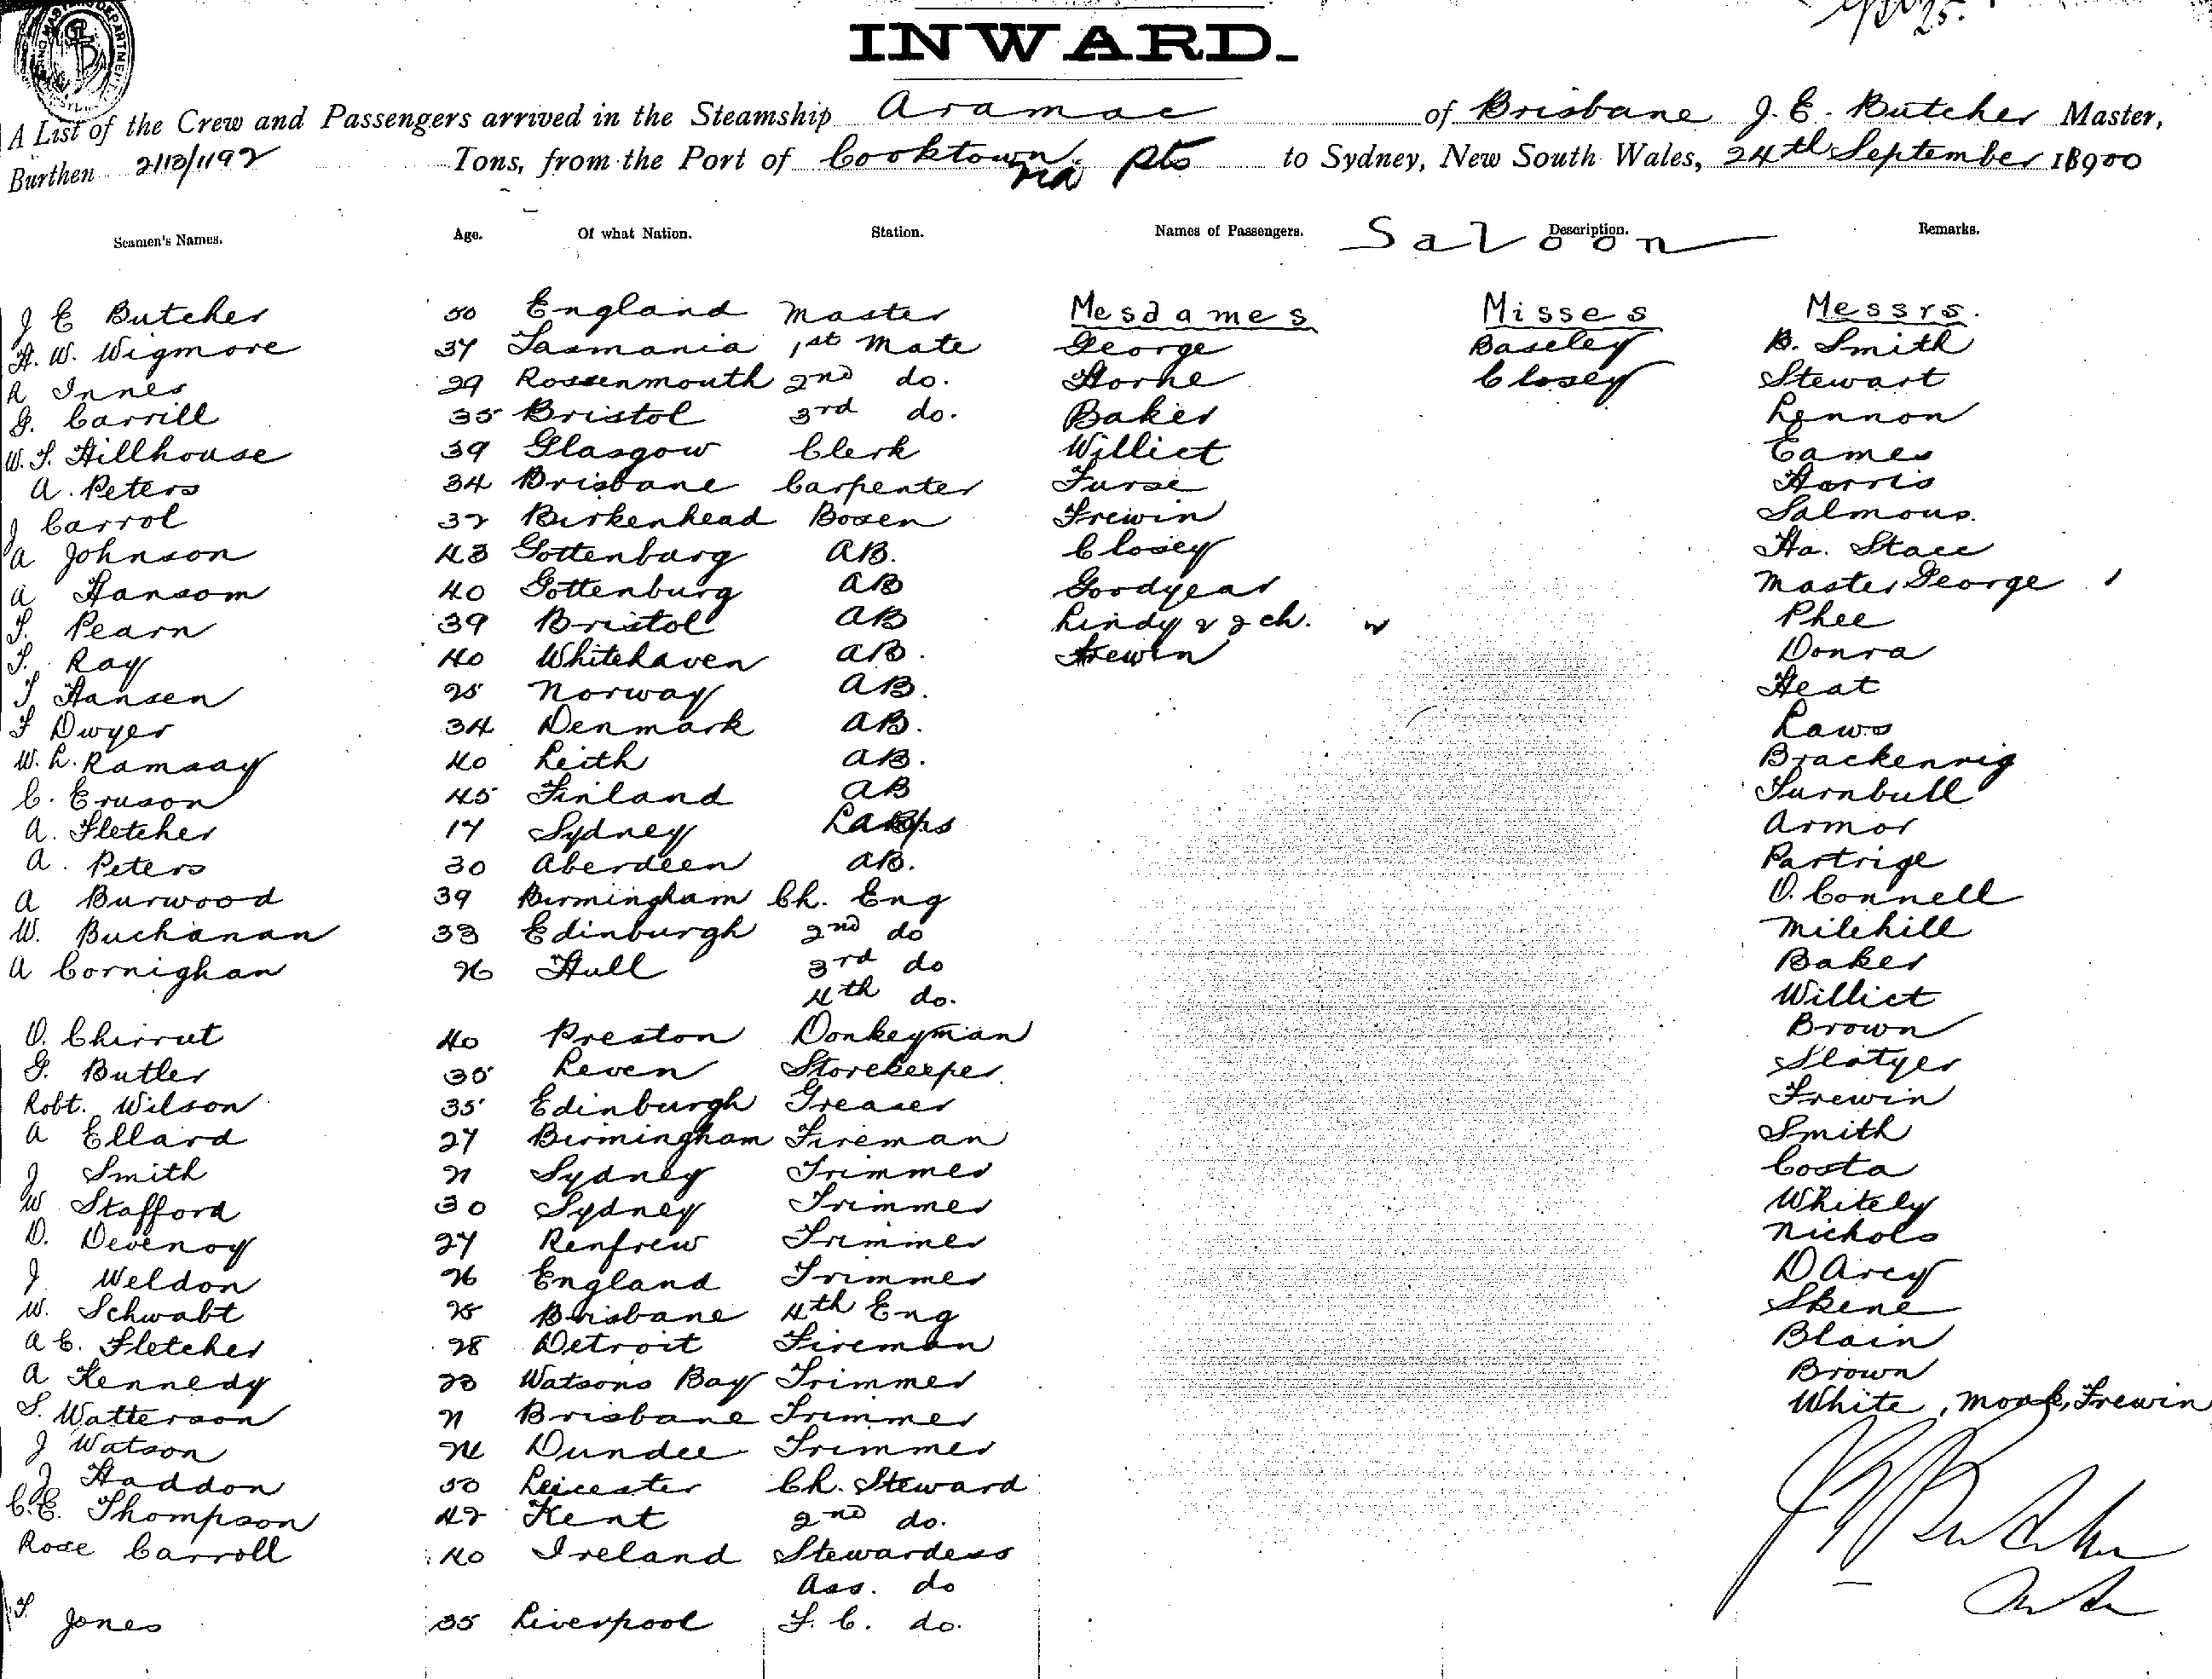 INWARD.
A List of the Crew and Passengers arrived in the Steamship Aramac of Brisbane J. E. Butcher Master,
Burthen 2113/1192 Tons, from the Port of Cooktown via pts to Sydney, New South Wales, 24th September 18900
Seamen's Names. Age. Of what Nation. Station. Names of Passengers. Saloon Description. Remarks.
J E Butcher 50 England Master Mesdames Misses Messrs.
H. W. Wigmore 37 Tasmania 1st Mate George Baseley B. Smith
R Innes 29 Rossenmouth 2nd do. Horne Closey Stewart
G. Carrill 35 Bristol 3rd do. Baker Lennon
W. F. Hillhouse 39 Glasgow Clerk Willict Eames
A. Peters 34 Brisbane Carpenter Furse Harris
J Carrol 32 Birkenhead Bosen Frewin Salmous.
A Johnson 43 Gottenburg AB. Closey Ha. Stace
A Hansom 40 Gottenburg AB Goodyear Master George
F. Pearn 39 Bristol AB Lindy & 2 ch. Phee
F. Ray 40 Whitehaven AB. Frewin Donra
T Hansen 25 Norway AB. Heat
F Dwyer 34 Denmark AB. Laws
W. L. Ramsay 40 Leith AB. Brackenrig
C. Eruson 45 Finland AB Turnbull
A. Fletcher 17 Sydney Lamps Armor
A. Peters 30 Aberdeen AB. Partrige
A Burwood 39 Birmingham Ch. Eng O. Connell
W. Buchanan 33 Edinburgh 2nd do Milehill
A Cornighan 26 Hull 3rd do Baker
4th do. Willict
D. Chirrut 40 Preston Donkeyman Brown
G. Butler 35 Leven Storekeeper Slatyer
Robt. Wilson 35 Edinburgh Greaser Frewin
A Ellard 27 Birmingham Fireman Smith
J Smith 21 Sydney Trimmer Costa
W Stafford 30 Sydney Trimmer Whitely
D. Devenoy 27 Renfrew Trimmer Nichols
J Weldon 26 England Trimmer D Arcy
W. Schwabt 25 Brisbane 4th Eng Skene
A E. Fletcher 28 Detroit Fireman Blain
A Kennedy 23 Watsons Bay Trimmer Brown
S. Watterson 21 Brisbane Trimmer White, Frewin
J Watson 24 Dundee Trimmer
J Haddon 50 Leicester Ch. Steward
C. E. Thompson 42 Kent 2nd do. J E Butcher
Rose Carroll 40 Ireland Stewardess
Ass. do
F. Jones 35 Liverpool F. C. do.